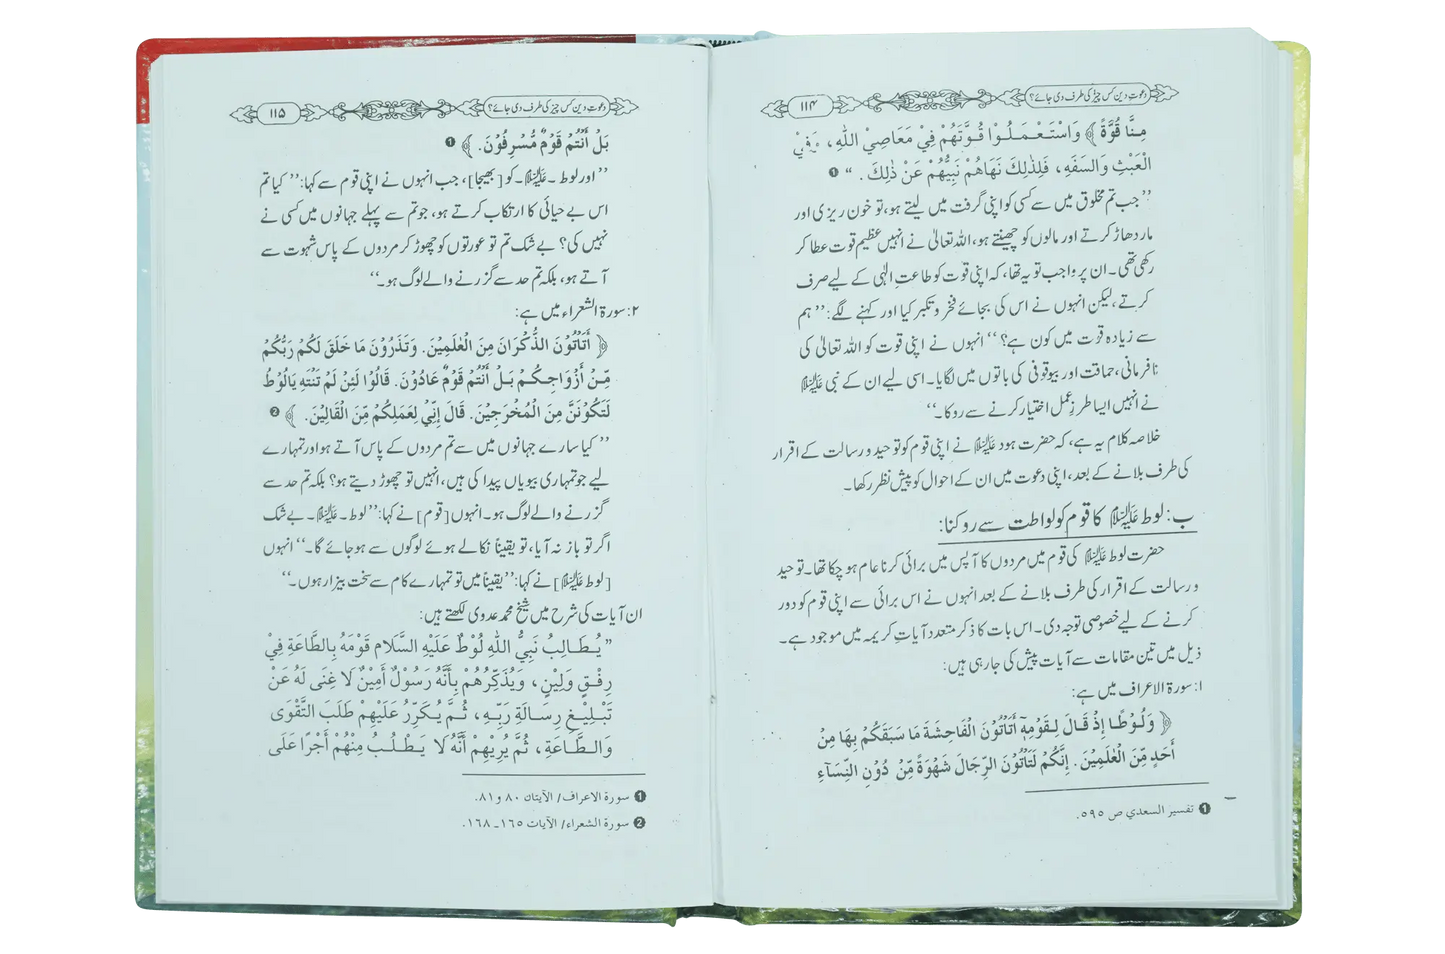 دعوتِ دین کس چیز کی طرف دی جائے؟
۱۱۴
مِنَّا قُوَّةً ﴾ وَاسْتَعْمَلُوْا قُوَّتَهُمْ فِيْ مَعَاصِيْ اللّٰهِ، وَفِيْ
الْعَبْثِ وَالسَفَهِ، فَلِذٰلِكَ نَهَاهُمْ نَبِيُّهُمْ عَنْ ذٰلِكَ . ‘‘ ❶
’’جب تم مخلوق میں سے کسی کو اپنی گرفت میں لیتے ہو، تو خون ریزی اور
مار دھاڑ کرتے اور مالوں کو چھینتے ہو، اللہ تعالیٰ نے انہیں عظیم قوت عطا کر
رکھی تھی۔ ان پر واجب تو یہ تھا، کہ اپنی قوت کو طاعتِ الٰہی کے لیے صرف
کرتے، لیکن انہوں نے اس کی بجائے فخر و تکبر کیا اور کہنے لگے: ’’ہم
سے زیادہ قوت میں کون ہے؟‘‘ انہوں نے اپنی قوت کو اللہ تعالیٰ کی
نافرمانی، حماقت اور بیوقوفی کی باتوں میں لگایا۔ اسی لیے ان کے نبی علیہ السلام
نے انہیں ایسا طرزِ عمل اختیار کرنے سے روکا۔‘‘
خلاصہ کلام یہ ہے، کہ حضرت ہود علیہ السلام نے اپنی قوم کو توحید و رسالت کے اقرار
کی طرف بلانے کے بعد، اپنی دعوت میں ان کے احوال کو پیش نظر رکھا۔
ب: لوط علیہ السلام کا قوم کو لواطت سے روکنا:
حضرت لوط علیہ السلام کی قوم میں مردوں کا آپس میں برائی کرنا عام ہو چکا تھا۔ توحید
و رسالت کے اقرار کی طرف بلانے کے بعد انہوں نے اس برائی سے اپنی قوم کو دور
کرنے کے لیے خصوصی توجہ دی۔ اس بات کا ذکر متعدد آیاتِ کریمہ میں موجود ہے۔
ذیل میں تین مقامات سے آیات پیش کی جا رہی ہیں:
۱: سورة الاعراف میں ہے:
﴿ وَلُوْطًا اِذْ قَالَ لِقَوْمِهٖٓ اَتَاْتُوْنَ الْفَاحِشَةَ مَا سَبَقَكُمْ بِهَا مِنْ
اَحَدٍ مِّنَ الْعٰلَمِيْنَ. اِنَّكُمْ لَتَاْتُوْنَ الرِّجَالَ شَهْوَةً مِّنْ دُوْنِ النِّسَآءِ
❶ تفسير السعدي ص ٥٩٥.
دعوتِ دین کس چیز کی طرف دی جائے؟
۱۱۵
بَلْ اَنْتُمْ قَوْمٌ مُّسْرِفُوْنَ. ﴾ ❶
’’اور لوط ۔علیہ السلام۔ کو [بھیجا]، جب انہوں نے اپنی قوم سے کہا: ’’کیا تم
اس بے حیائی کا ارتکاب کرتے ہو، جو تم سے پہلے جہانوں میں کسی نے
نہیں کی؟ بے شک تم تو عورتوں کو چھوڑ کر مردوں کے پاس شہوت سے
آتے ہو، بلکہ تم حد سے گزرنے والے لوگ ہو۔‘‘
۲: سورة الشعراء میں ہے:
﴿ اَتَاْتُوْنَ الذُّكْرَانَ مِنَ الْعٰلَمِيْنَ. وَتَذَرُوْنَ مَا خَلَقَ لَكُمْ رَبُّكُمْ
مِّنْ اَزْوَاجِكُمْ بَلْ اَنْتُمْ قَوْمٌ عَادُوْنَ. قَالُوْا لَئِنْ لَّمْ تَنْتَهِ يٰلُوْطُ
لَتَكُوْنَنَّ مِنَ الْمُخْرَجِيْنَ. قَالَ اِنِّيْ لِعَمَلِكُمْ مِّنَ الْقَالِيْنَ. ﴾ ❷
’’کیا سارے جہانوں میں سے تم مردوں کے پاس آتے ہو اور تمہارے
لیے جو تمہاری بیویاں پیدا کی ہیں، انہیں تو چھوڑ دیتے ہو؟ بلکہ تم حد سے
گزرنے والے لوگ ہو۔ انہوں [قوم] نے کہا: ’’لوط ۔علیہ السلام۔ بے شک
اگر تو باز نہ آیا، تو یقیناً نکالے ہوئے لوگوں سے ہو جائے گا۔‘‘ انہوں
[لوط علیہ السلام] نے کہا: ’’یقیناً میں تو تمہارے کام سے سخت بیزار ہوں۔‘‘
ان آیات کی شرح میں شیخ محمد عدوی لکھتے ہیں:
’’يُطَالِبُ نَبِيُّ اللّٰهِ لُوْطٌ عَلَيْهِ السَّلَام قَوْمَهُ بِالطَّاعَةِ فِيْ
رِفْقٍ وَلِيْنٍ، وَيُذَكِّرُهُمْ بِأَنَّهُ رَسُوْلٌ أَمِيْنٌ لَا غِنَى لَهُ عَنْ
تَبْلِيْغِ رِسَالَةِ رَبِّهِ، ثُمَّ يُكَرِّرُ عَلَيْهِمْ طَلَبَ التَّقْوَى
وَالطَّاعَةِ، ثُمَّ يُرِيْهِمْ أَنَّهُ لَا يَطْلُبُ مِنْهُمْ أَجْرًا عَلَى
❶ سورة الاعراف/ الآيتان ٨٠ و ٨١.
❷ سورة الشعراء/ الآيات ١٦٥ـ١٦٨.